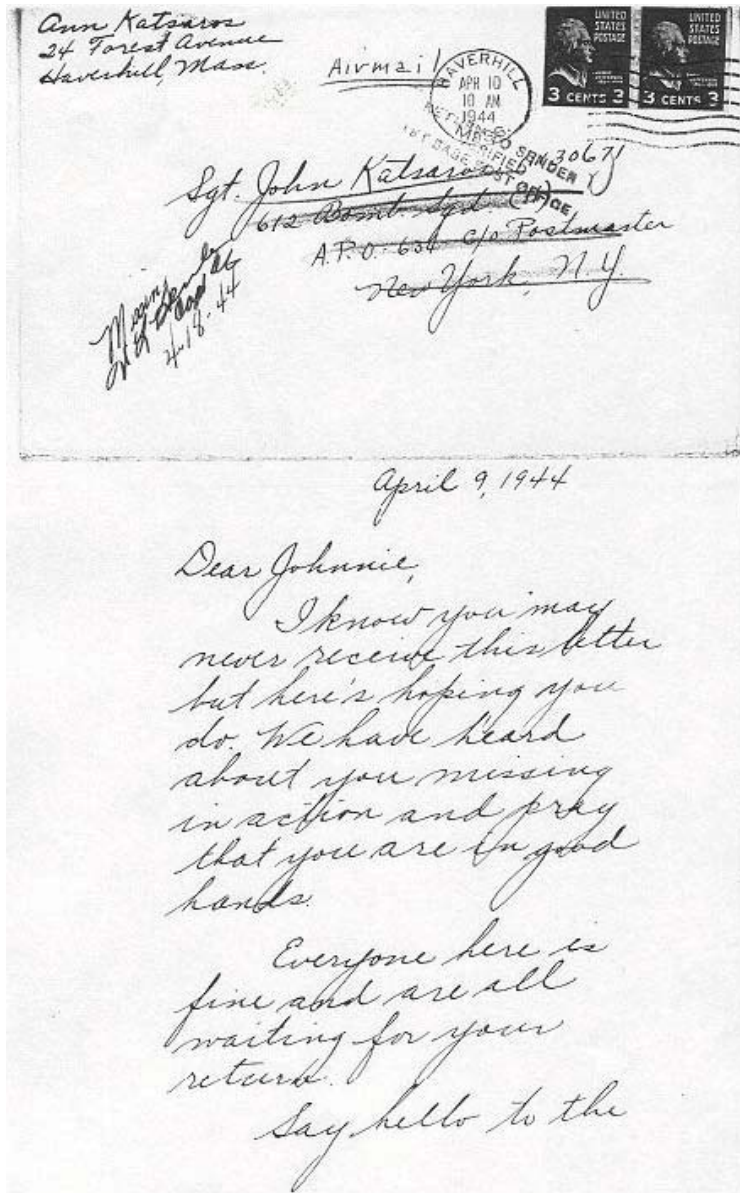 Ann Katsaros
24 Forest Avenue
Haverhill, Mass.
Airmail
HAVERHILL
APR 10
10 AM
1944
MASS.
UNITED
STATES
POSTAGE
3 CENTS 3
UNITED
STATES
POSTAGE
3 CENTS 3
RETURNED TO SENDER
VERIFIED
1ST BASE POST OFFICE
Sgt. John Katsaros
612 Bomb. Sqd. (H)
A.P.O. 634 c/o Postmaster
New York, N.Y.
Missing
4-18-44
April 9, 1944
Dear Johnnie,
I know you may
never receive this letter
but here's hoping you
do. We have heard
about you missing
in action and pray
that you are in good
hands.
Everyone here is
fine and are all
waiting for your
return.
Say hello to the